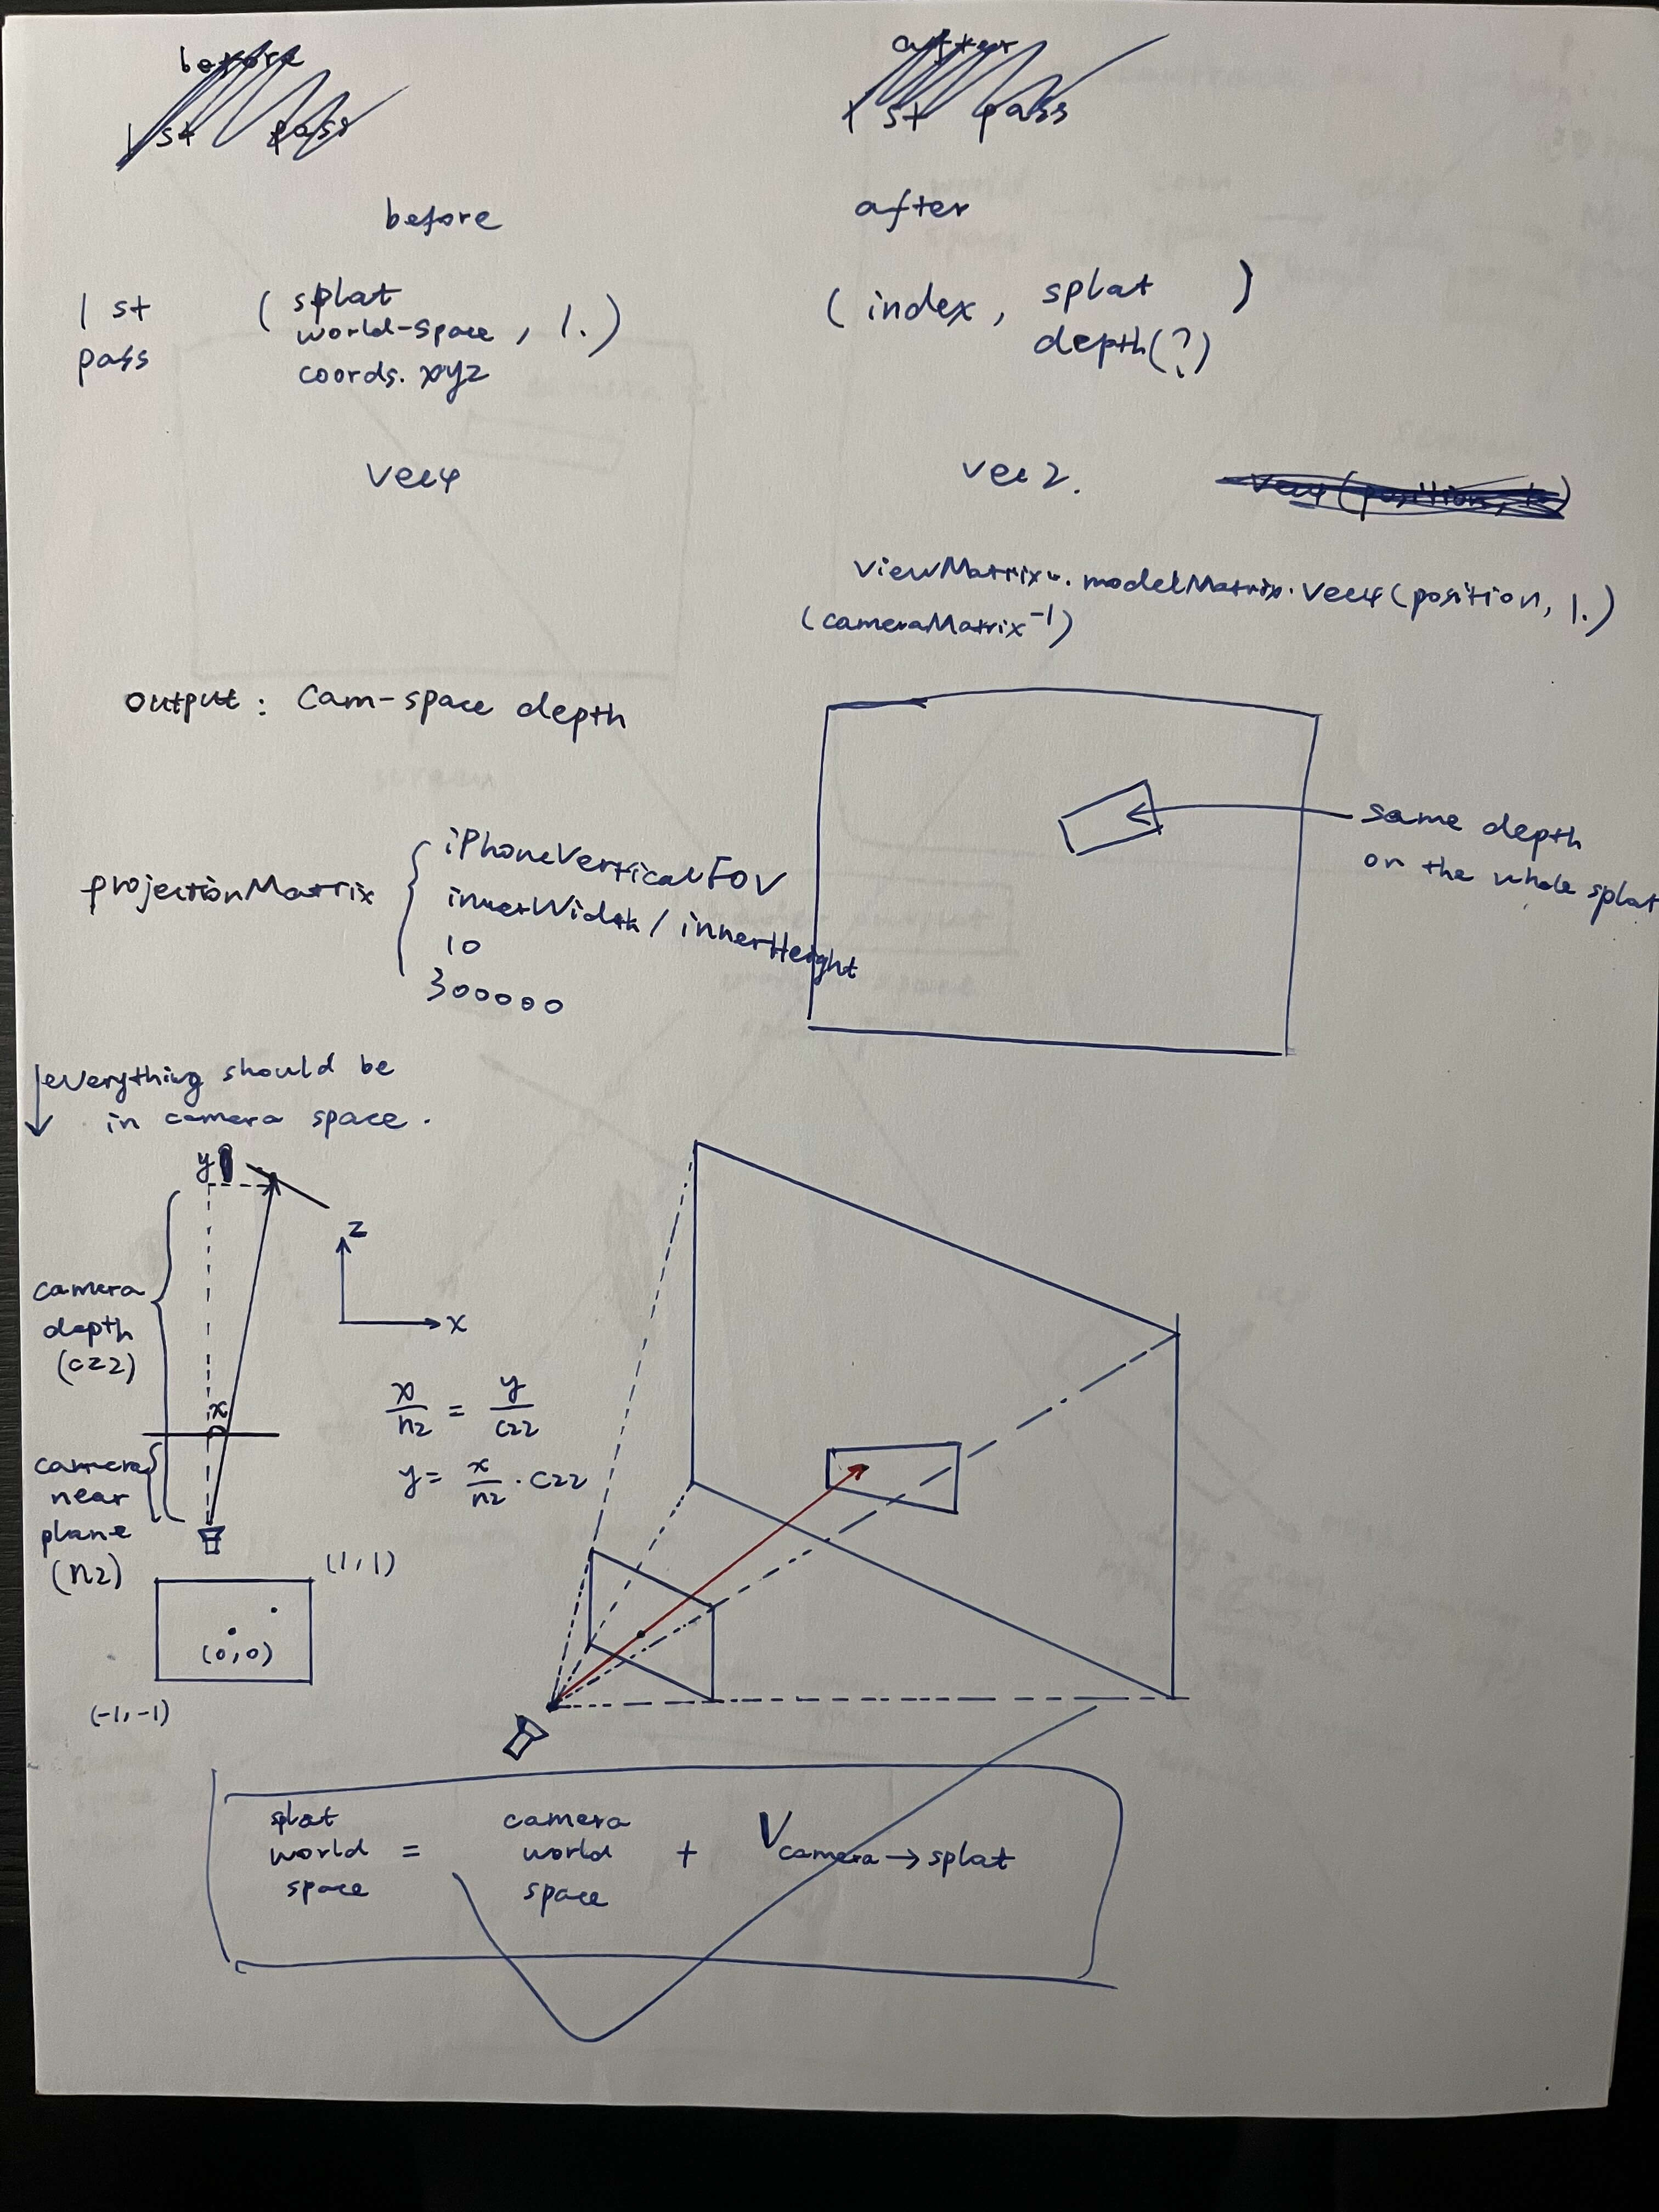 before
1 st pass
after
1 st pass
before
after
1 st
pass
( splat
world-space , 1. )
coords. xyz
( index, splat
depth(?) )
vec4
vec2.
viewMatrix . modelMatrix . vec4(position, 1.)
(cameraMatrix⁻¹)
output : Cam-space depth
same depth
on the whole splat
projectionMatrix {
iPhoneVerticalFOV
innerWidth / innerHeight
10
300000
↓ everything should be
in camera space.
y
z
x
camera
depth
(czz)
x
x/nz = y/czz
y = x/nz . czz
camera
near
plane
(nz)
(1, 1)
(0, 0)
(-1, -1)
splat
world
space
=
camera
world
space
+
V camera → splat